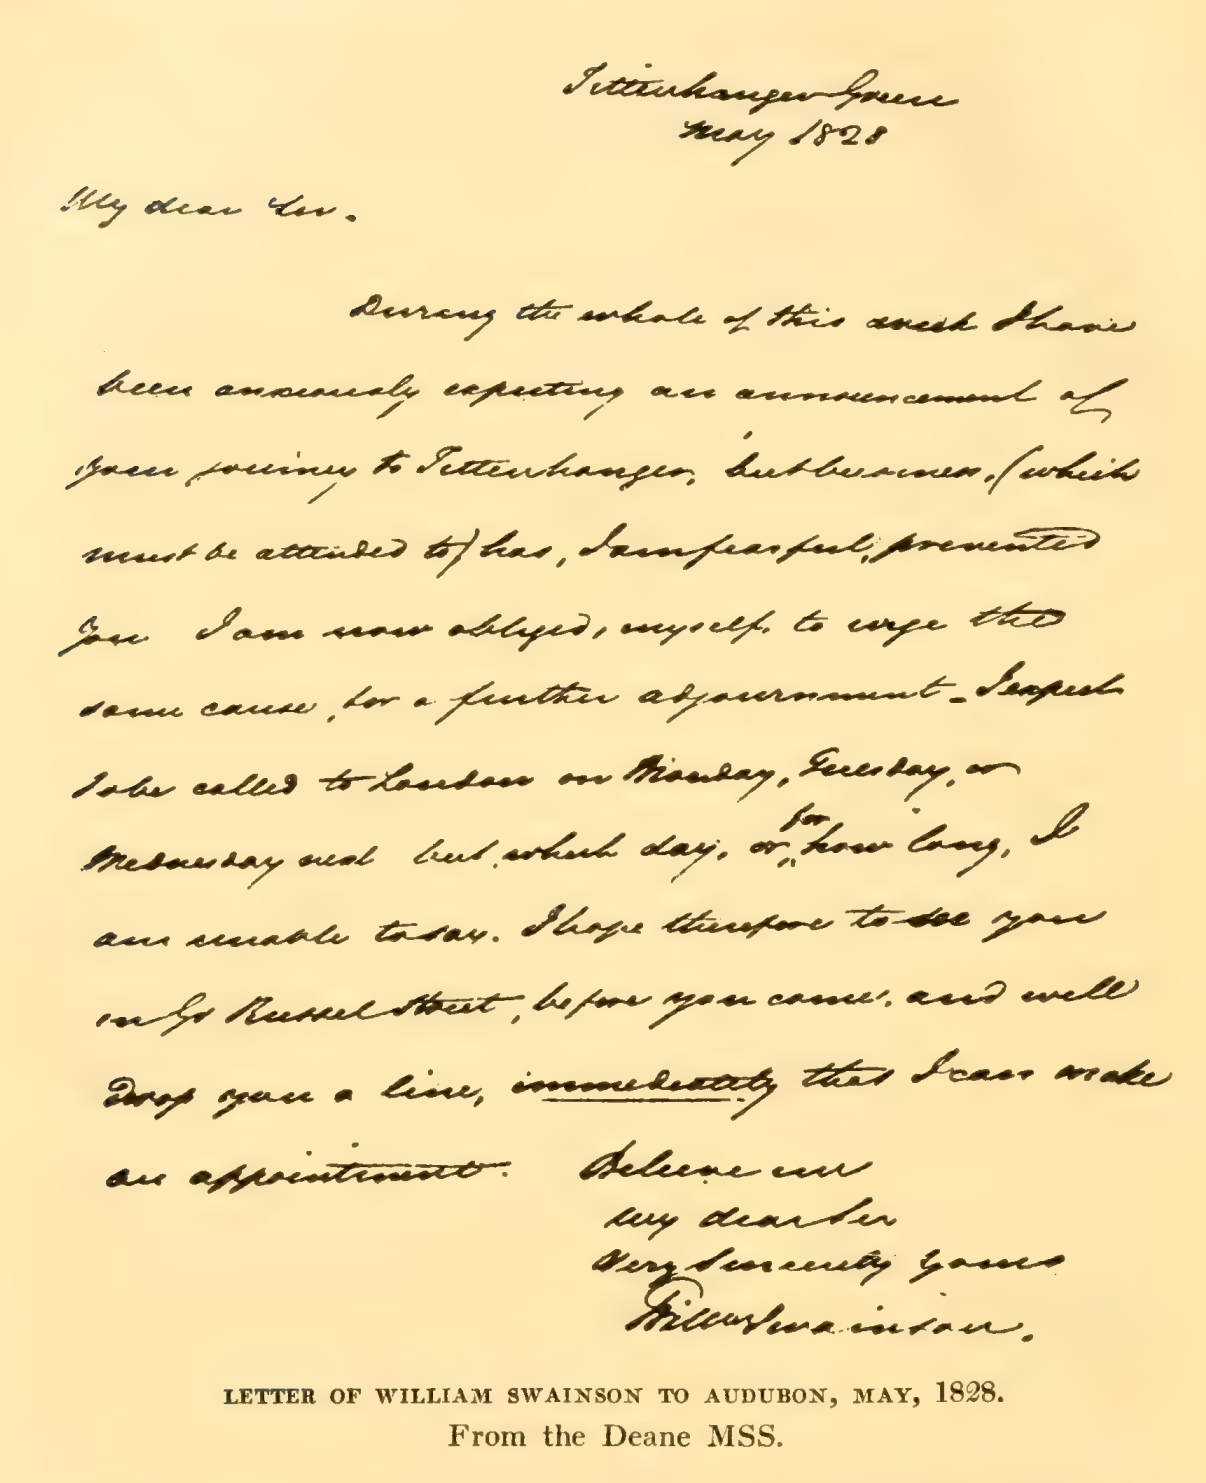 Tittenhanger Green
May 1828
My dear Sir.
During the whole of this week I have
been anxiously expecting an announcement of
your journey to Tittenhanger, but business, (which
must be attended to) has, I am fearful, prevented
you I am now obliged, myself, to urge the
same cause, for a further adjournment _ I expect
to be called to London on Monday, Tuesday, or
Wednesday next but which day, or for how long, I
am unable to say. I hope therefore to see you
in Gt Russel Street, before you come, and will
drop you a line, immediately that I can make
an appointment. Believe me
my dear Sir
Very Sincerely yours
Willm Swainson.
LETTER OF WILLIAM SWAINSON TO AUDUBON, MAY, 1828.
From the Deane MSS.